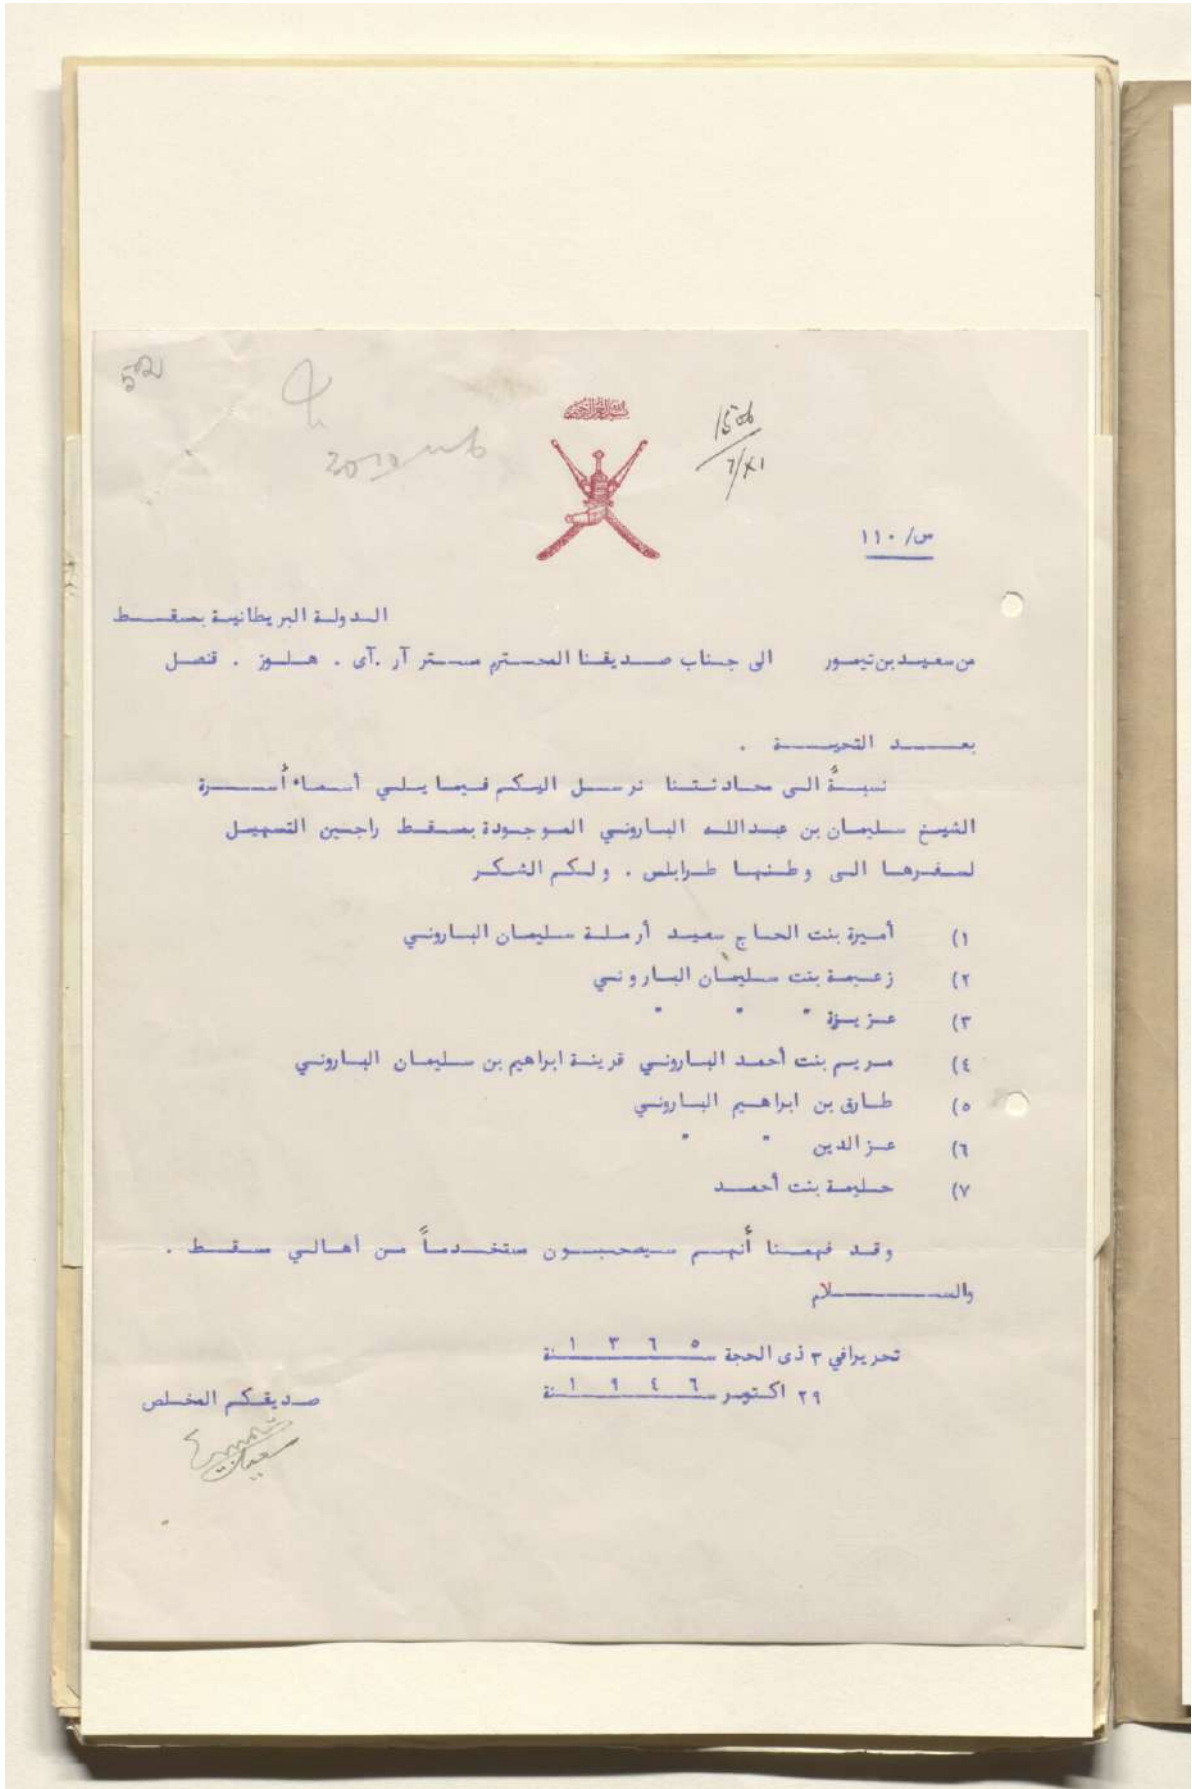 بسم الله الرحمن الرحيم
1506
7/XI
س/ ١١٠
الدولة البريطانية بمسقط
من سعيد بن تيمور الى جناب صديقنا المحترم مستر آر .آى . هلوز . قنصل
بعد التحية .
نسبةً الى محادثتنا نرسل اليكم فيما يلي أسماء أُسرة
الشيخ سليمان بن عبدالله الباروني الموجودة بمسقط راجين التسهيل
لسفرها الى وطنها طرابلس . ولكم الشكر
١) أميرة بنت الحاج سعيد أرملة سليمان الباروني
٢) زعيمة بنت سليمان الباروني
٣) عزيزة " " "
٤) مريم بنت أحمد الباروني قرينة ابراهيم بن سليمان الباروني
٥) طارق بن ابراهيم الباروني
٦) عزالدين " "
٧) حليمة بنت أحمد
وقد فهمنا أنهم سيصحبون مستخدماً من أهالي مسقط .
والسلام
تحريرافي ٣ ذى الحجة سنة ١٣٦٥
٢٩ اكتوبر سنة ١٩٤٦
صديقكم المخلص
سعيد بن تيمور